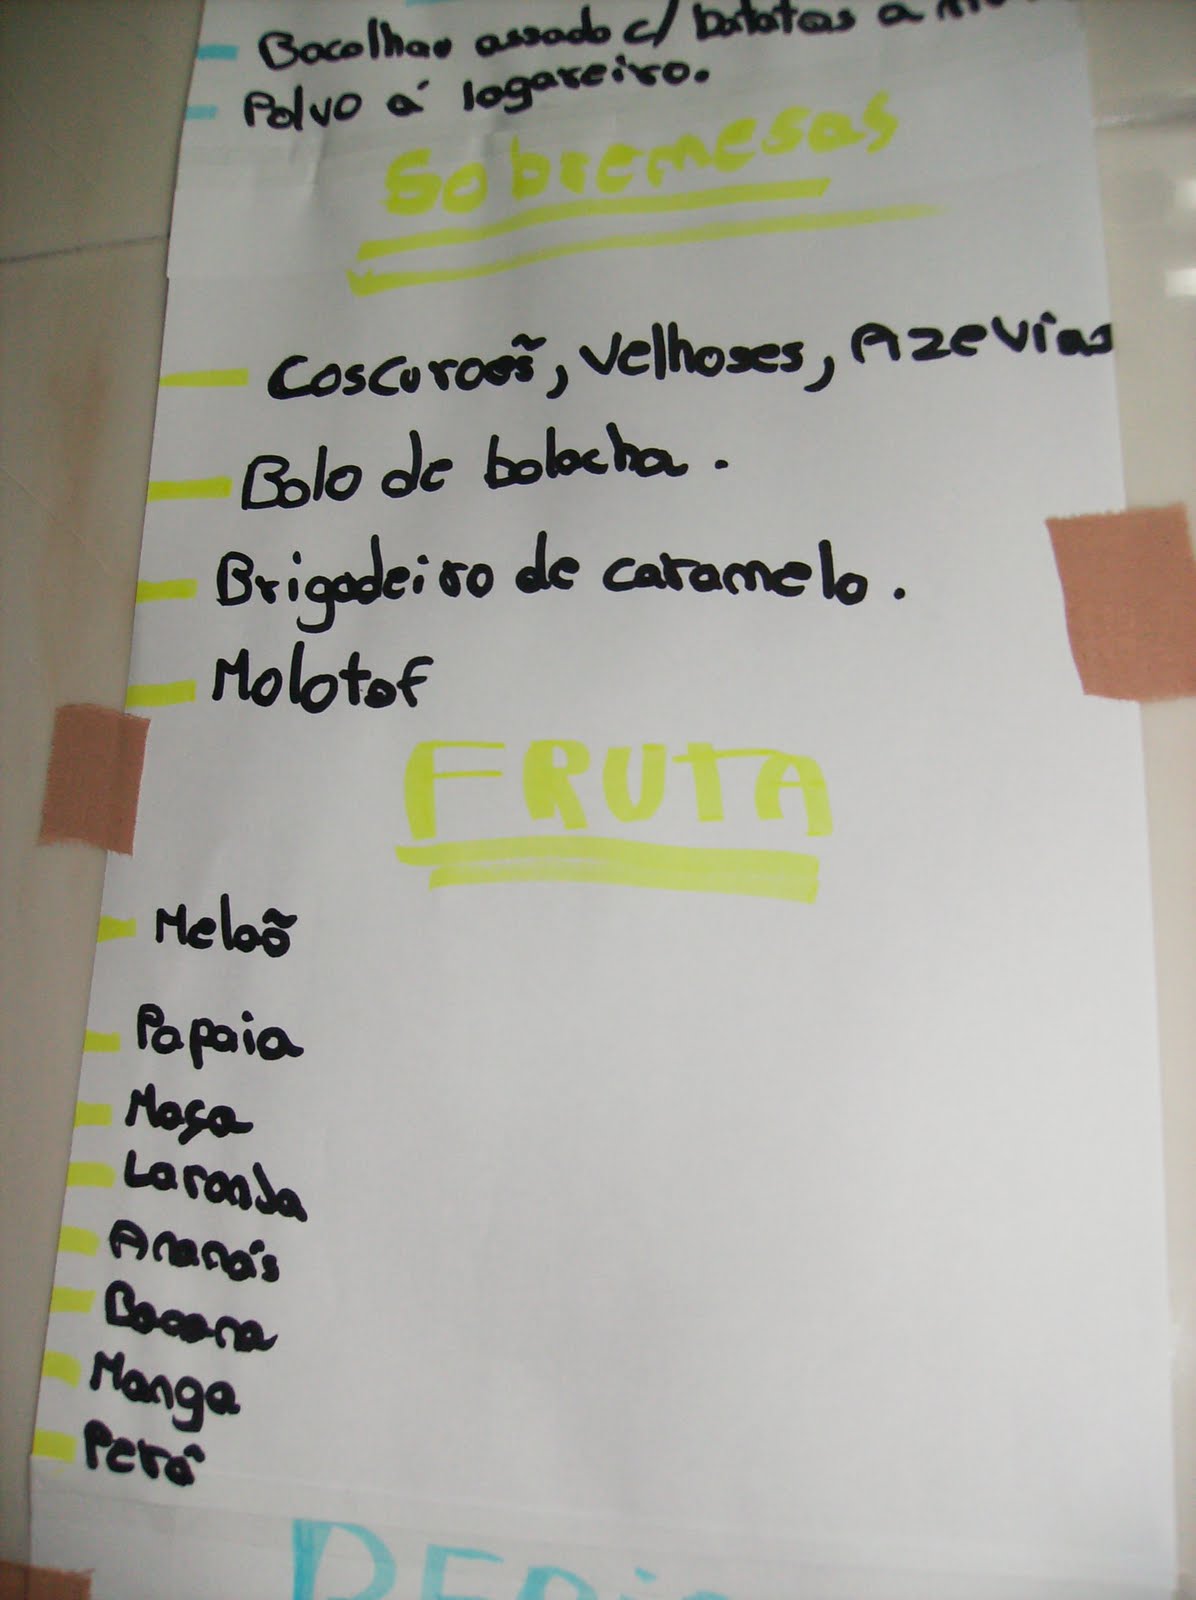 - Bacalhau assado c/ batatas a
- Polvo á lagareiro.
Sobremesas
- Coscoroõs, Velhoses, Azevias
- Bolo de bolacha.
- Brigadeiro de caramelo.
- Molotof
FRUTA
- Meloõ
- Papaia
- Maça
- Laranja
- Ananás
- Banana
- Manga
- Perô